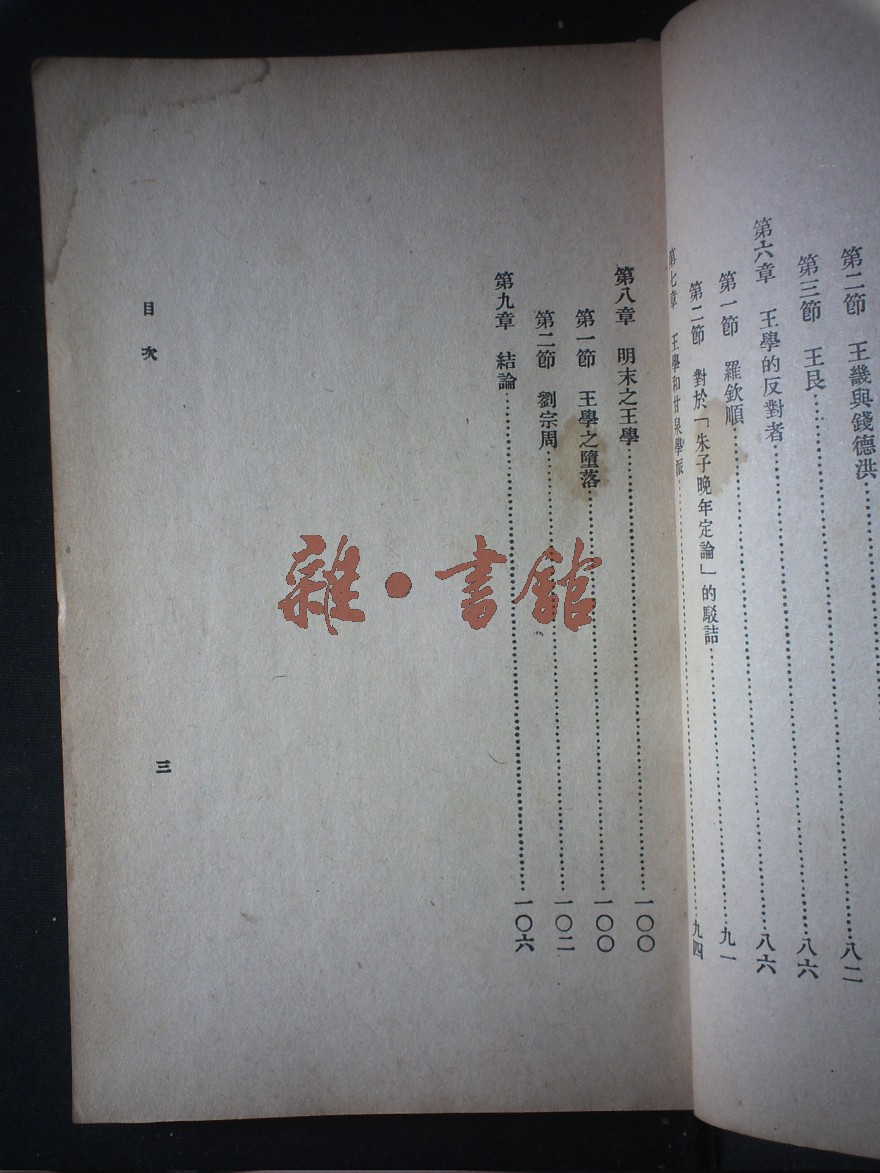 第二節　王畿與錢德洪……
第三節　王艮……八二
第六章　王學的反對者……八六
第一節　羅欽順……八六
第二節　對於「朱子晚年定論」的駁詰……九一
第七章　王學和甘泉學派……九四
第八章　明末之王學……一〇〇
第一節　王學之墮落……一〇〇
第二節　劉宗周……一〇二
第九章　結論……一〇六
目次
三
雜·書館